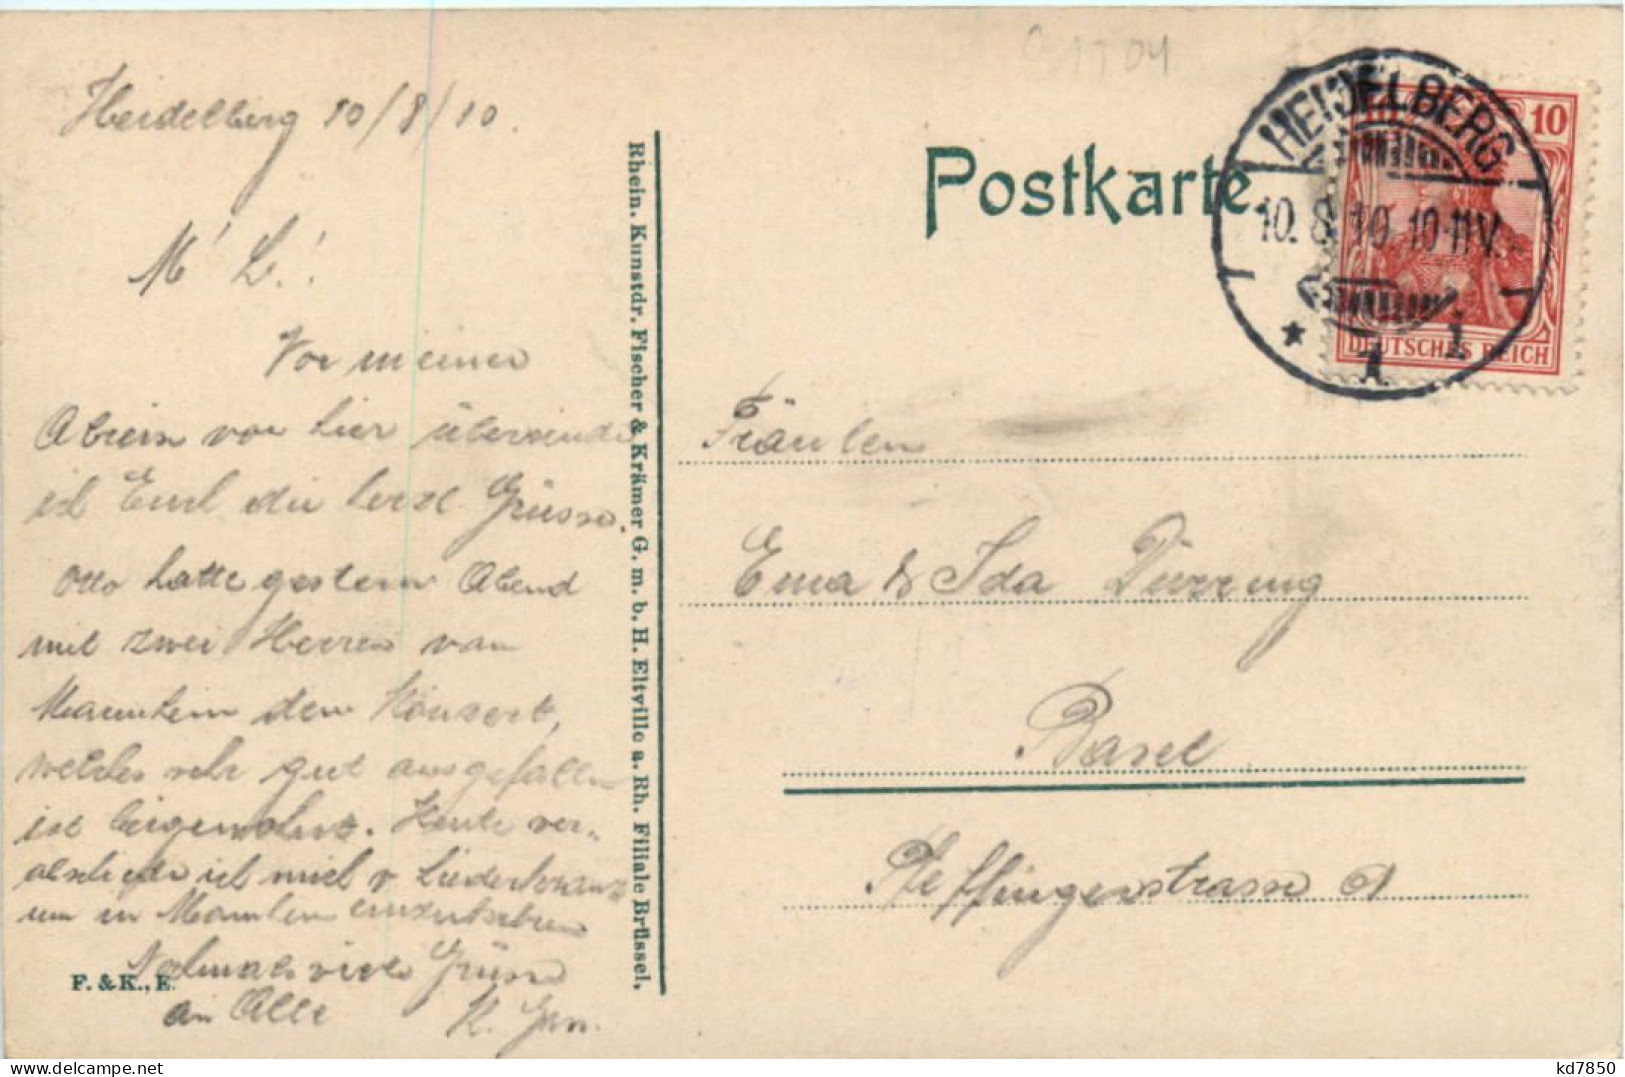 C 1704
Heidelberg 10/8/10.
M' L.!
Vor meiner
Abreise von hier übersende
ich Euch die herzl. Grüsse.
Otto hatte gestern Abend
mit zwei Herren von
Mannheim dem Konzert,
welches sehr gut ausgefallen
ist beigewohnt. Heute ver-
abschiede ich mich v. Liederkranz
um in Mannheim einzukehren
Nochmals viele Grüsse
an Alle
F. & K., E.
Rhein. Kunstdr. Fischer & Krämer G. m. b. H. Eltville a. Rh. Filiale Brüssel.
Postkarte
HEIDELBERG
10.8.10.10-11V.
* 1 1
10
DEUTSCHES REICH
Fräulein
Ema & Ida
Basel
Pfeffingerstrasse
kd7850